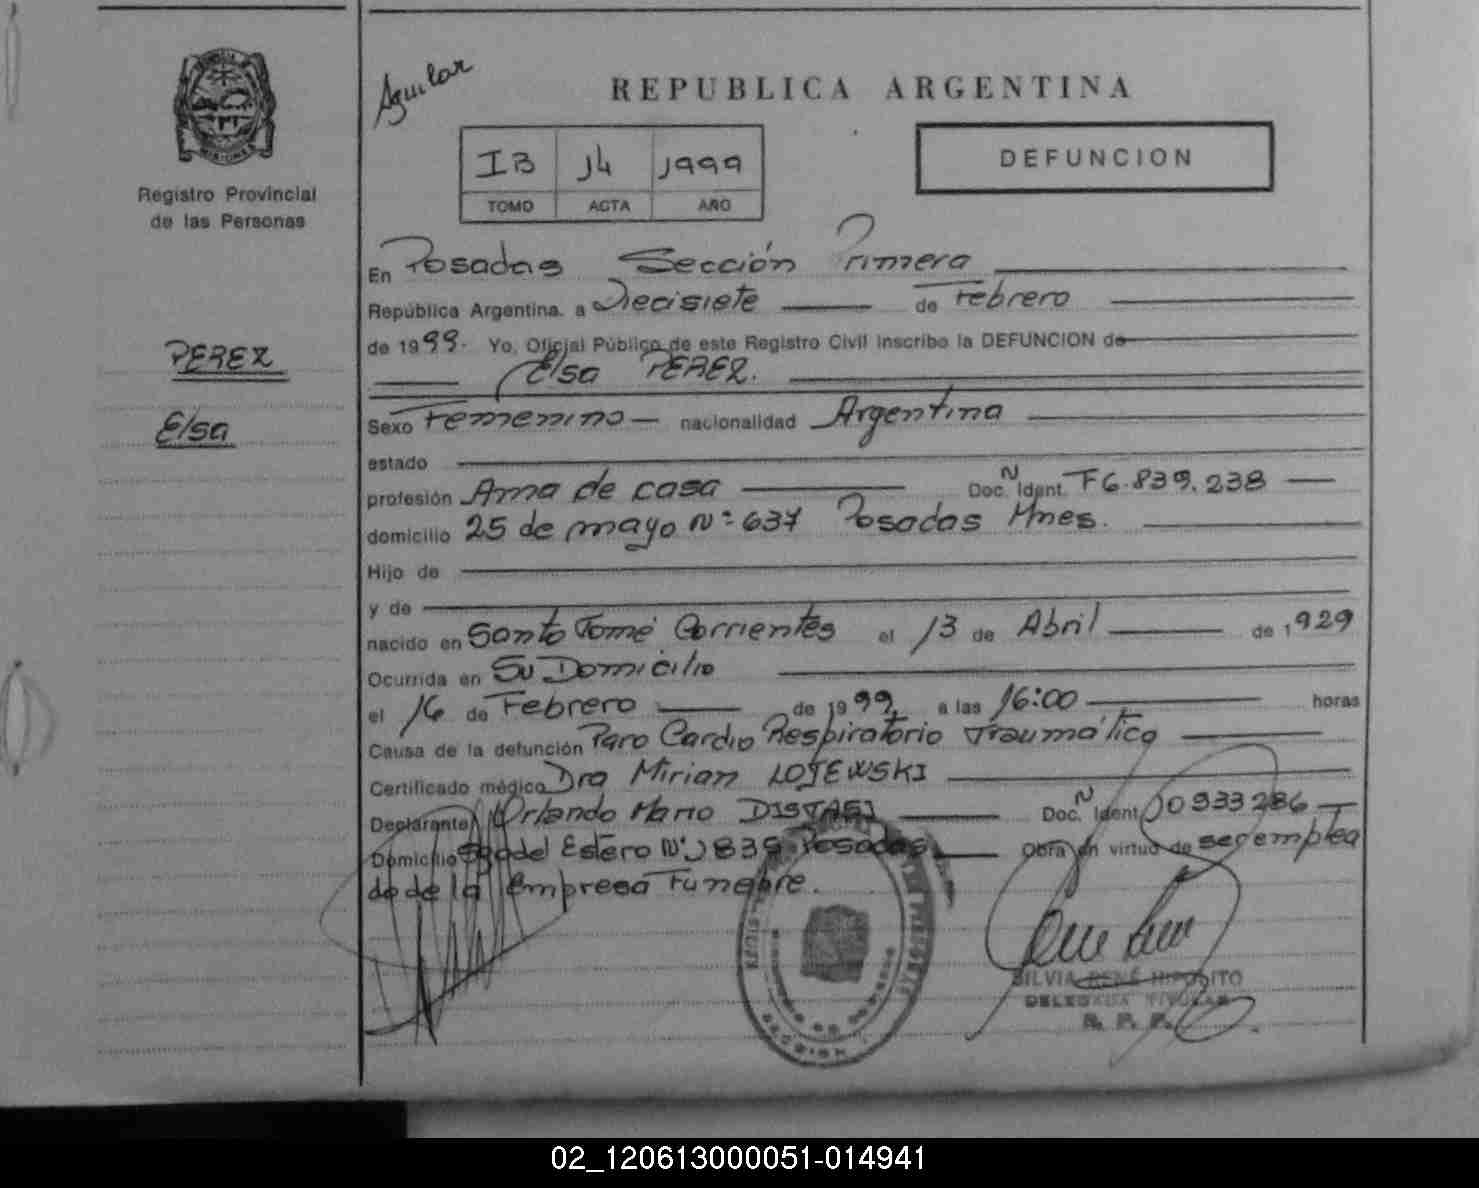 Aguilar
REPUBLICA ARGENTINA
Registro Provincial
de las Personas
IB 14 1999
TOMO ACTA AÑO
DEFUNCION
PEREZ
Elsa
En Posadas Sección Primera
República Argentina, a Diecisiete de Febrero
de 1999. Yo, Oficial Público de este Registro Civil inscribo la DEFUNCION de
Elsa PEREZ.
Sexo Femenino nacionalidad Argentina
estado
profesión Ama de casa Doc. N Ident. F6.839.238
domicilio 25 de mayo Nº 637 Posadas Mnes.
Hijo de
y de
nacido en Santo Tomé Corrientes el 13 de Abril de 1929
Ocurrida en Su Domicilio
el 16 de Febrero de 1999, a las 16:00 horas
Causa de la defunción Paro Cardio Respiratorio Traumático
Certificado médico Dra Mirian LOJEWSKI
Declarante Orlando Mario Doc. N Ident. 10933286
Domicilio Sgo del Estero Nº 1835 Posadas Obra en virtud de ser emplea
do de la Empresa Funebre.
SILVIA RENÉ HIPOLITO
DELEGADA TITULAR
R. P. P.
02_120613000051-014941